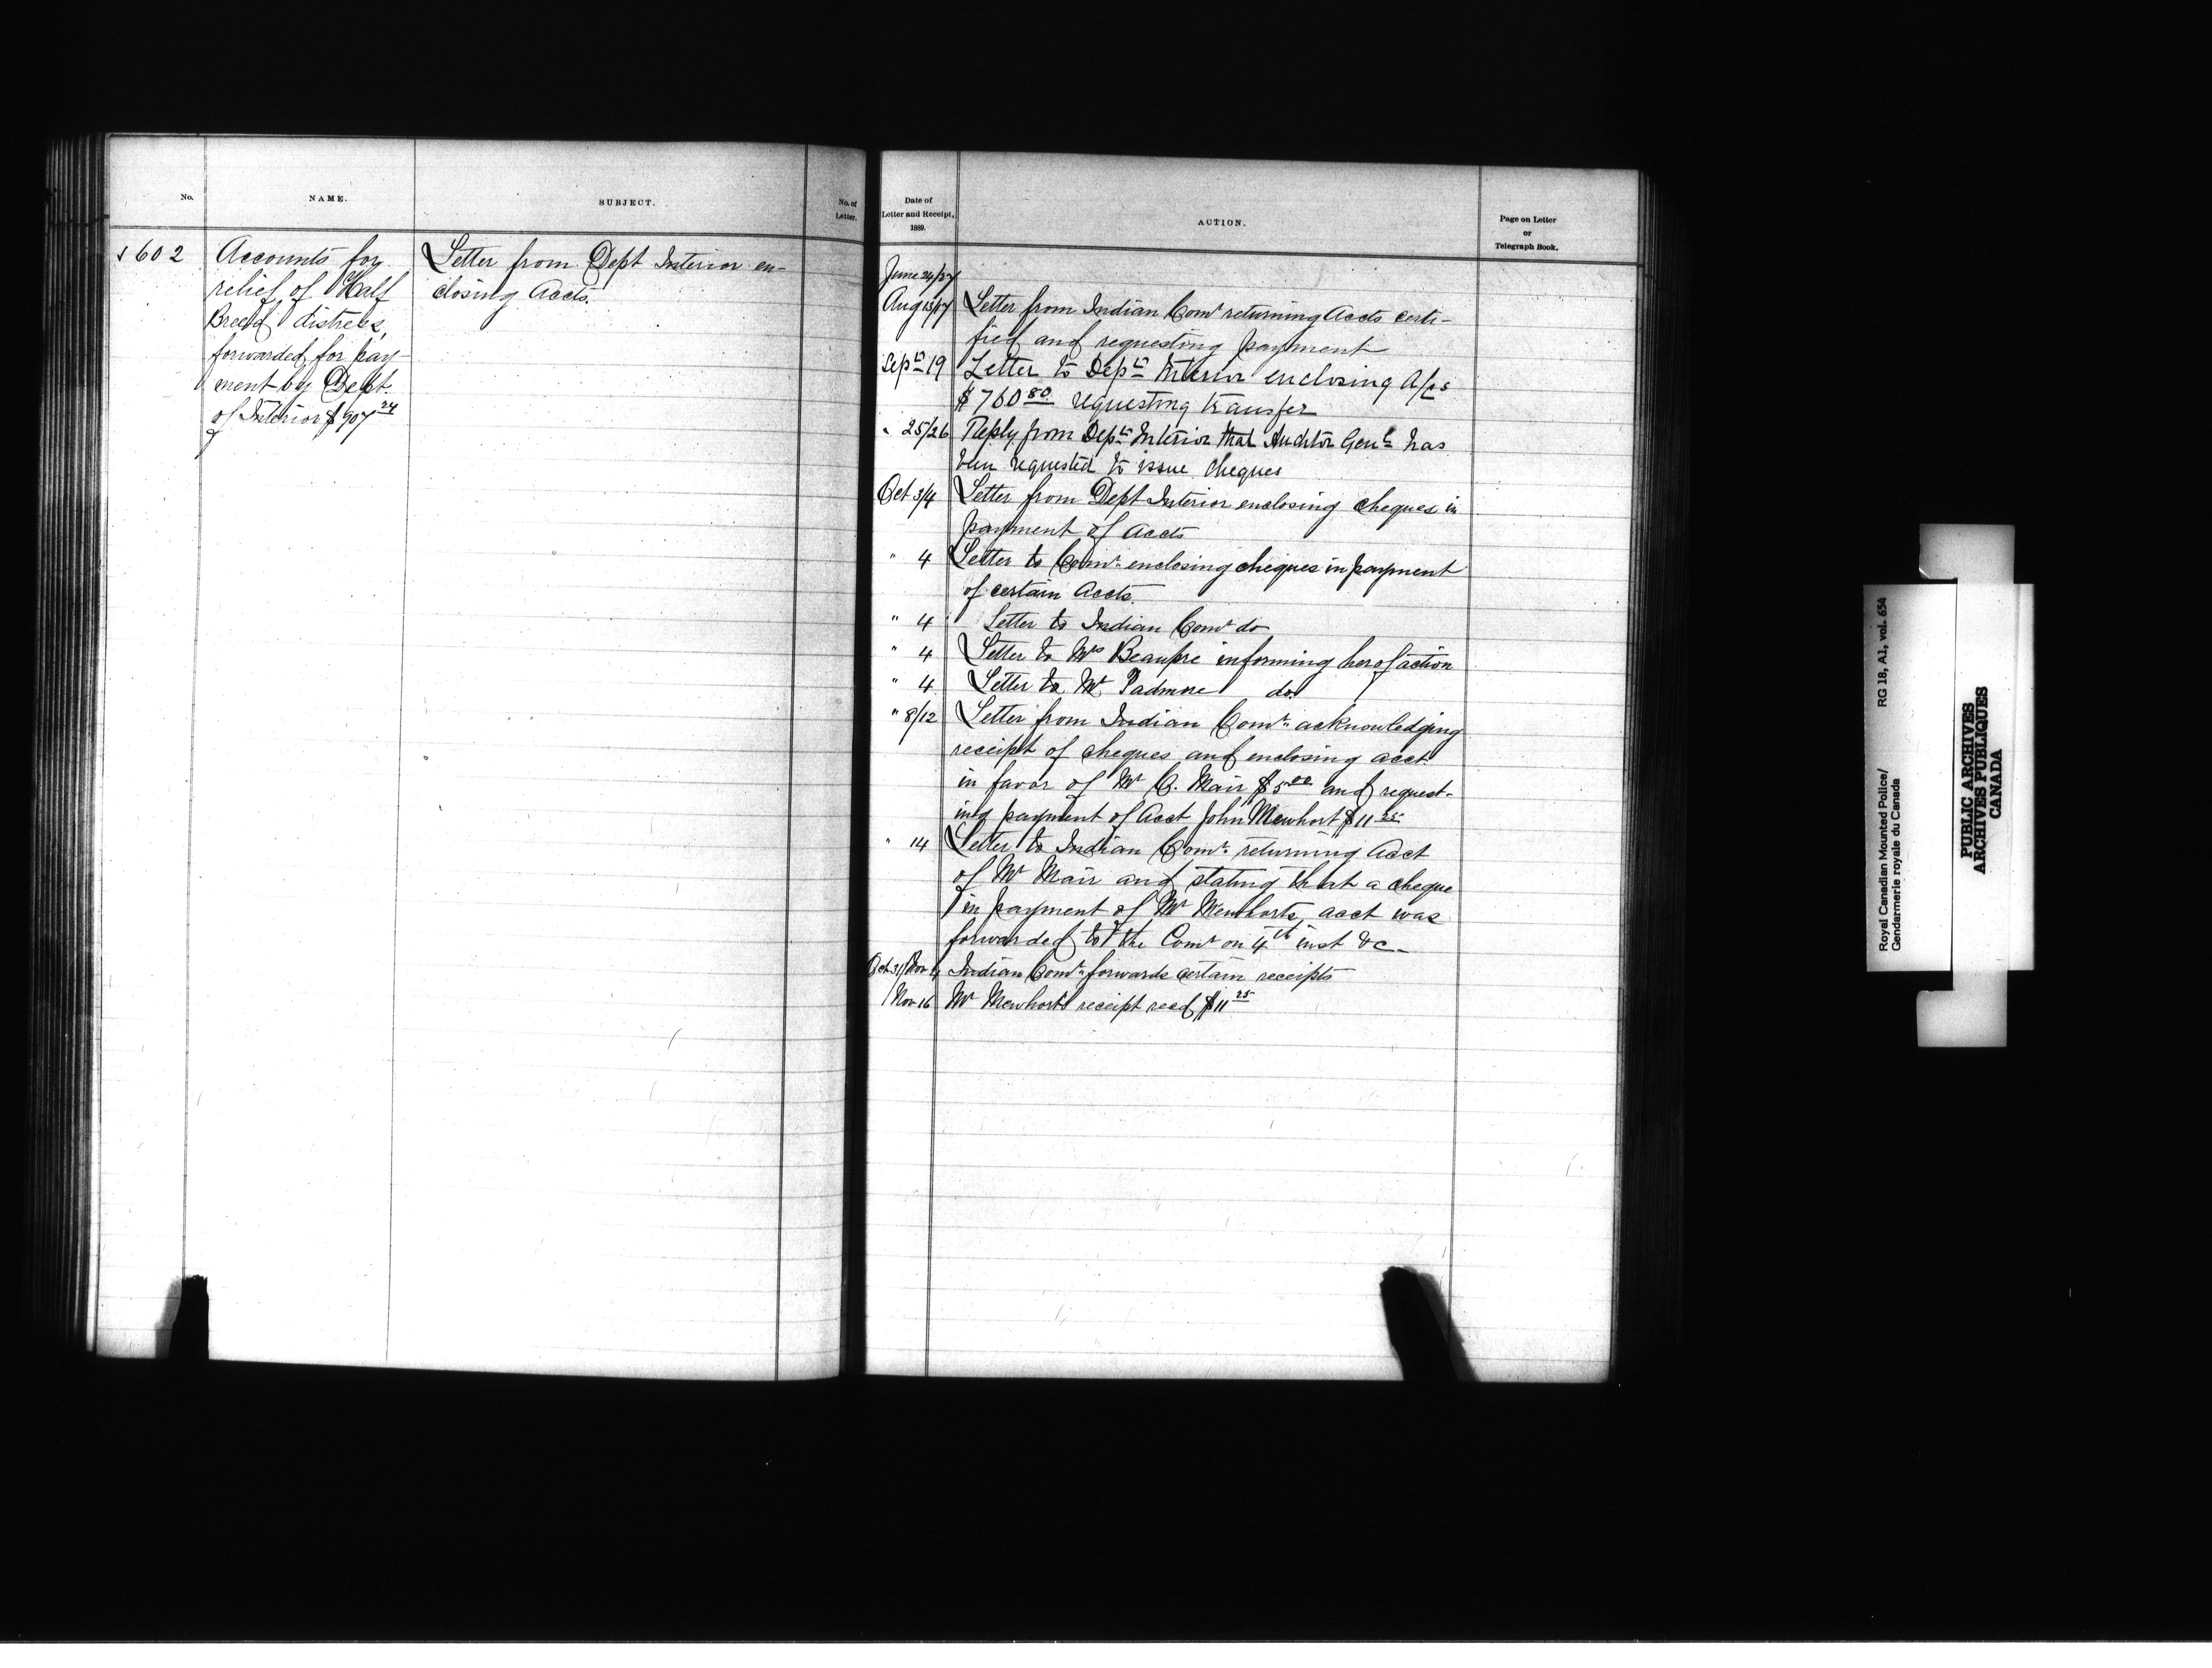 No.
NAME.
SUBJECT.
No. of
Letter.
602
Accounts for
relief of Half
Breed distress,
forwarded for pay-
ment by Dept.
of Interior $907 24
Letter from Dept Interior en-
closing Accts.
Date of
Letter and Receipt,
1889.
ACTION.
Page on Letter
or
Telegraph Book.
June 24/27
Aug 13/17 Letter from Indian Comr returning Accts certi-
fied and requesting payment
Sept 19 Letter to Dept Interior enclosing A/cs
$760 80 requesting transfer
" 25/26 Reply from Dept Interior that Auditor Genl has
been requested to issue cheques
Oct 3/4 Letter from Dept Interior enclosing cheques in
payment of accts
" 4 Letter to Comr enclosing cheques in payment
of certain Accts.
" 4 Letter to Indian Comr do
" 4 Letter to Mrs Beaupre informing her of action
" 4 Letter to Mr. Padmore do.
" 8/12 Letter from Indian Comr acknowledging
receipt of cheques and enclosing acct.
in favor of Mr C. Mair $5 00 and request-
ing payment of Acct John Mewhort $11 25
" 14 Letter to Indian Comr returning Acct
of Mr Mair and stating that a cheque
in payment of Mr Mewhorts acct was
forwarded to the Comr on 4th inst &c -
Oct 31/Nov Indian Comr forwards certain receipts
/Nov 16 Mr Mewhorts receipt recd $11 25
Royal Canadian Mounted Police/ RG 18, A1, vol. 654
Gendarmerie royale du Canada
PUBLIC ARCHIVES
ARCHIVES PUBLIQUES
CANADA